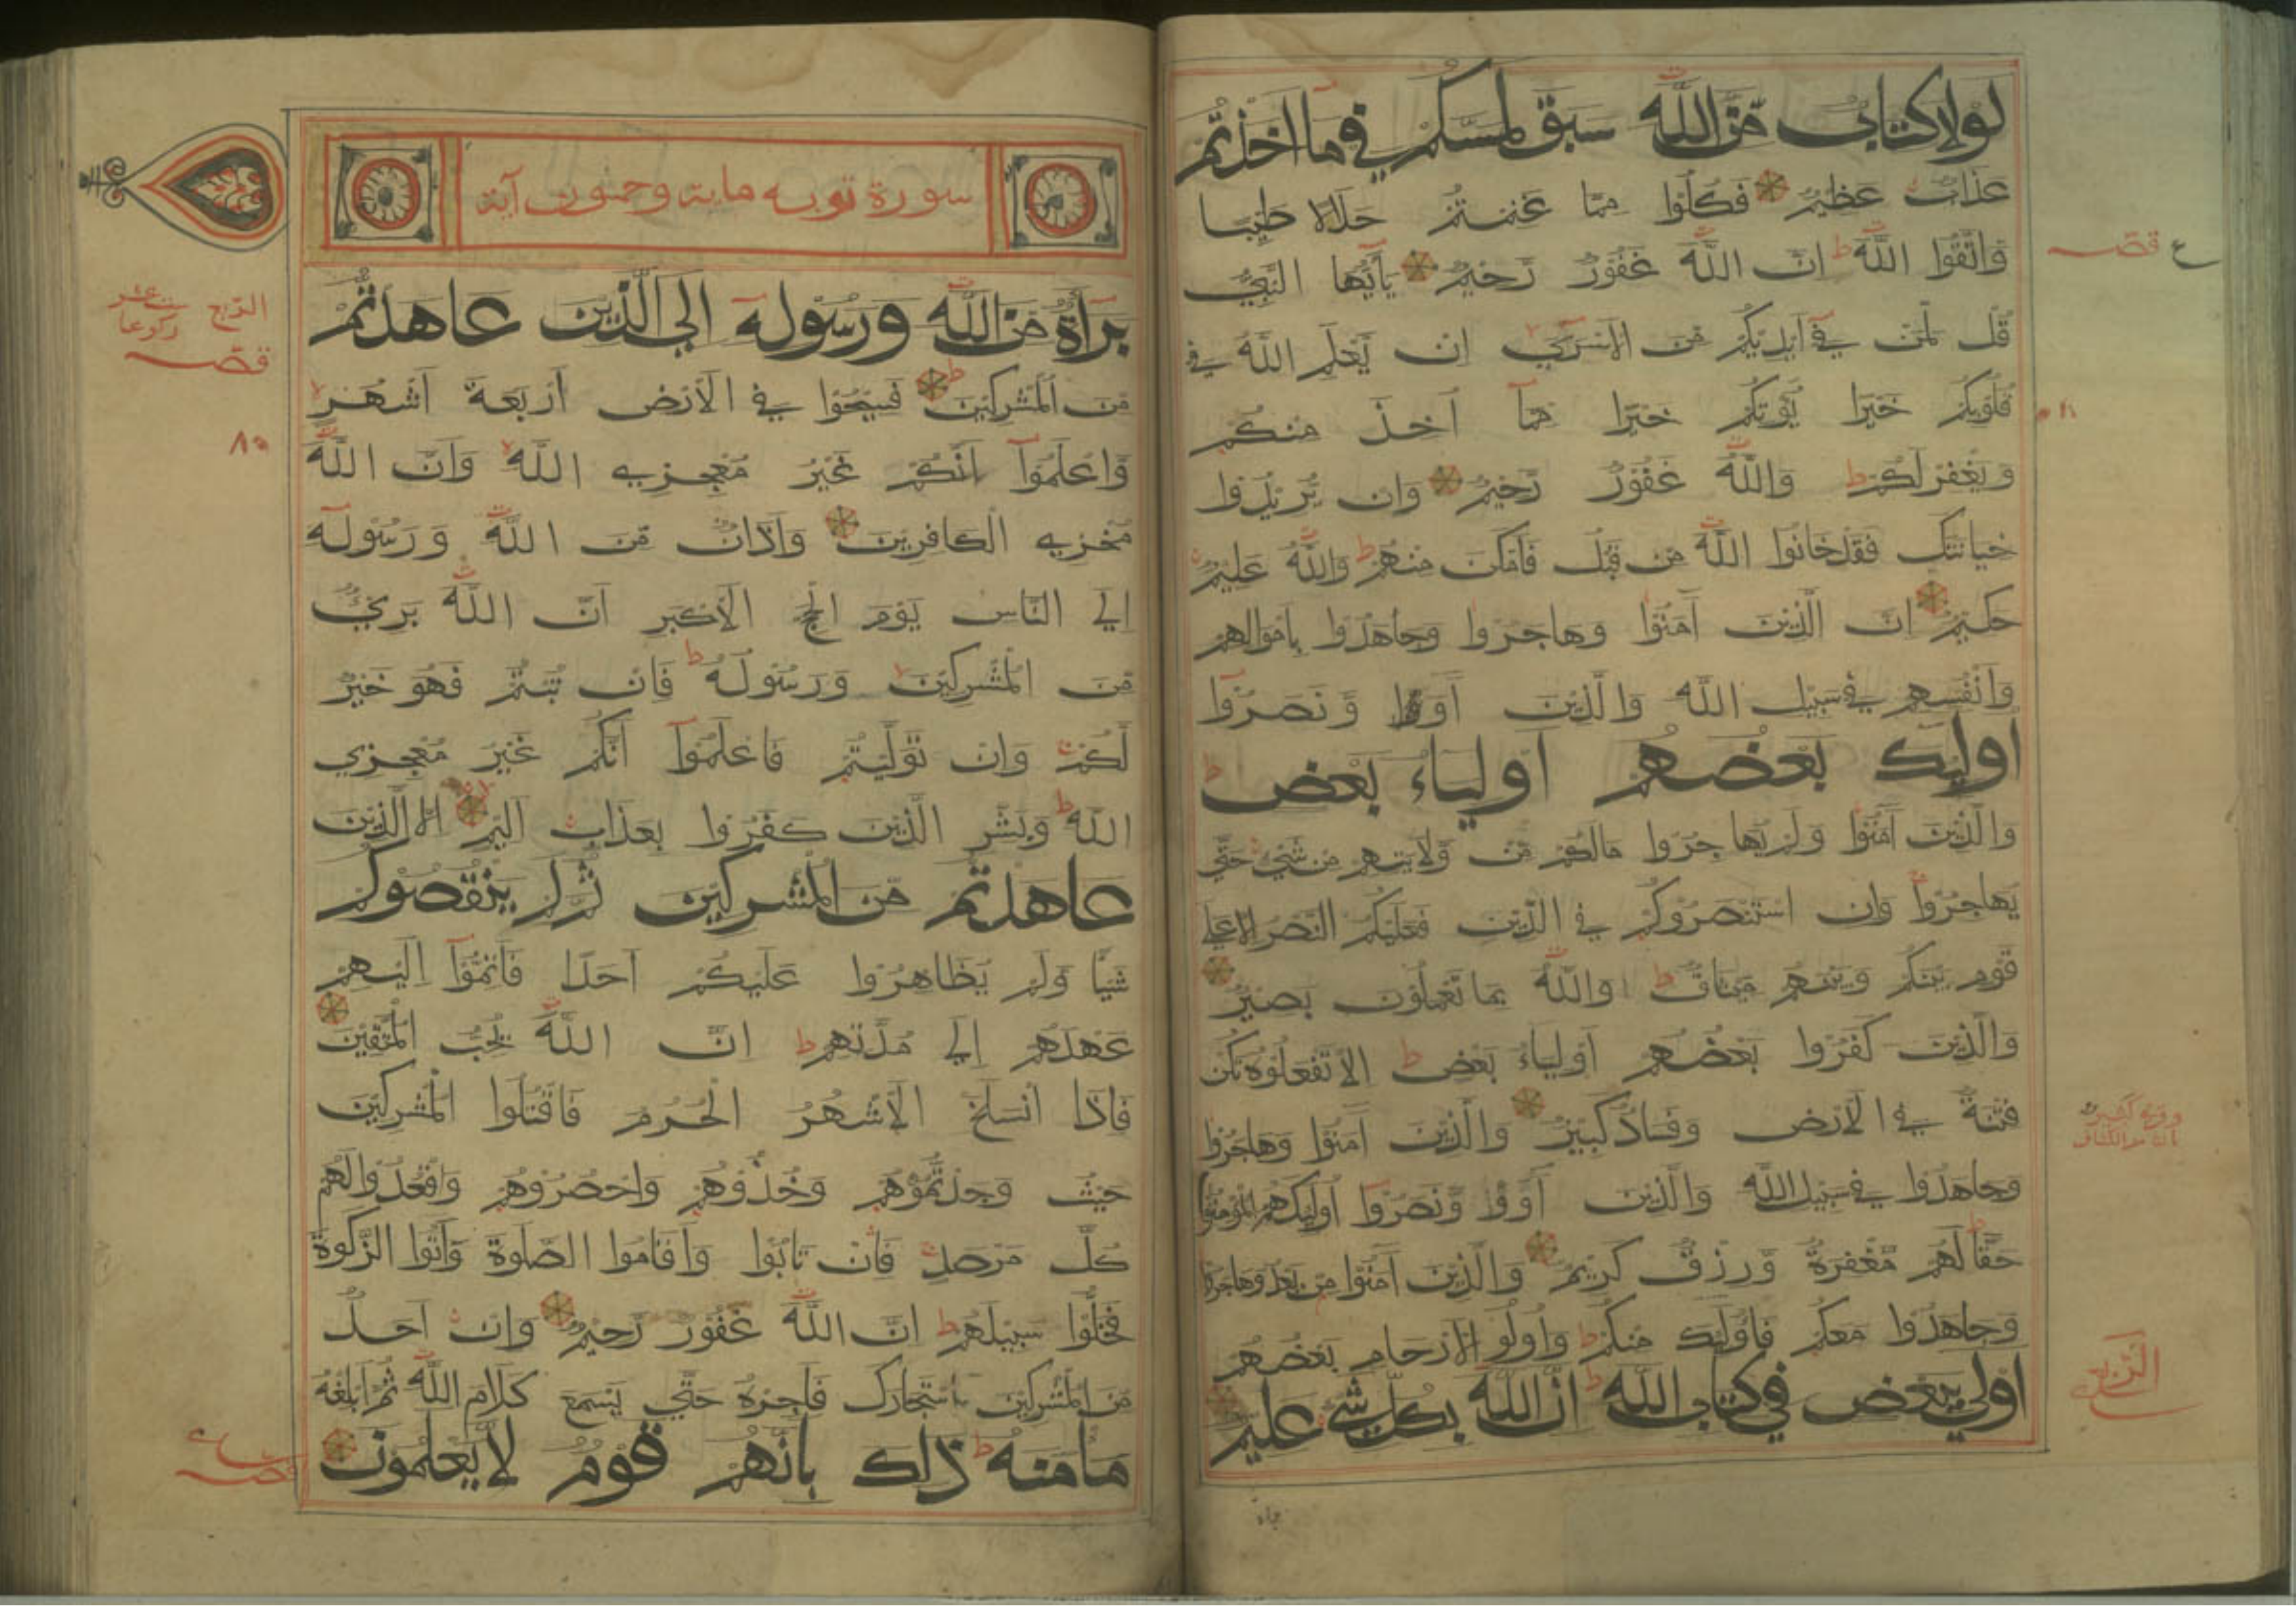 لولا كتاب من الله سبق لمسكم في ما اخذتم
عذاب عظيم فكلوا مما غنمتم حلالا طيبا
واتقوا الله ط ان الله غفور رحيم يأيها النبي
قل لمن في ايديكم من الاسري ان يعلم الله في
قلوبكم خيرا يؤتكم خيرا مما اخذ منكم
ويغفرلكم ط والله غفور رحيم وان يريدوا
خيانتك فقد خانوا الله من قبل فامكن منهم ط والله عليم
حكيم ان الذين آمنوا وهاجروا وجاهدوا باموالهم
وانفسهم في سبيل الله والذين آووا ونصروا
اولئك بعضهم اولياء بعض ط
والذين آمنوا ولم يهاجروا مالكم من ولايتهم من شيء حتي
يهاجروا وان استنصروكم في الدين فعليكم النصر الا علي
قوم بينكم وبينهم ميثاق ط والله بما تعملون بصير
والذين كفروا بعضهم اولياء بعض ط الا تفعلوه تكن
فتنة في الارض وفساد كبير والذين آمنوا وهاجروا
وجاهدوا في سبيل الله والذين آووا ونصروا اولئك هم المؤمنون
حقا لهم مغفرة ورزق كريم والذين آمنوا من بعد وهاجروا
وجاهدوا معكم فاولئك منكم ط واولو الارحام بعضهم
اولي ببعض في كتاب الله ط ان الله بكل شيء عليم
ع قصه
الربع
براة
سورة توبه مایة وخمسون آية
براءة من الله ورسوله الي الذين عاهدتم
من المشركين ط فسيحوا في الارض اربعة اشهر
واعلموا انكم غير معجزي الله وان الله
مخزي الكافرين واذان من الله ورسوله
الي الناس يوم الحج الاكبر ان الله بريء
من المشركين ورسوله ط فان تبتم فهو خير
لكم وان توليتم فاعلموا انكم غير معجزي
الله ط وبشر الذين كفروا بعذاب اليم الا الذين
عاهدتم من المشركين ثم لم ينقصوكم
شيئا ولم يظاهروا عليكم احدا فاتموا اليهم
عهدهم الي مدتهم ط ان الله يحب المتقين
فاذا انسلخ الاشهر الحرم فاقتلوا المشركين
حيث وجدتموهم وخذوهم واحصروهم واقعدوا لهم
كل مرصد فان تابوا واقاموا الصلوة وآتوا الزكوة
فخلوا سبيلهم ط ان الله غفور رحيم وان احد
من المشركين استجارك فاجره حتي يسمع كلام الله ثم ابلغه
مامنه ط ذلك بانهم قوم لا يعلمون
الربع
ركوعا
قصه
قصه